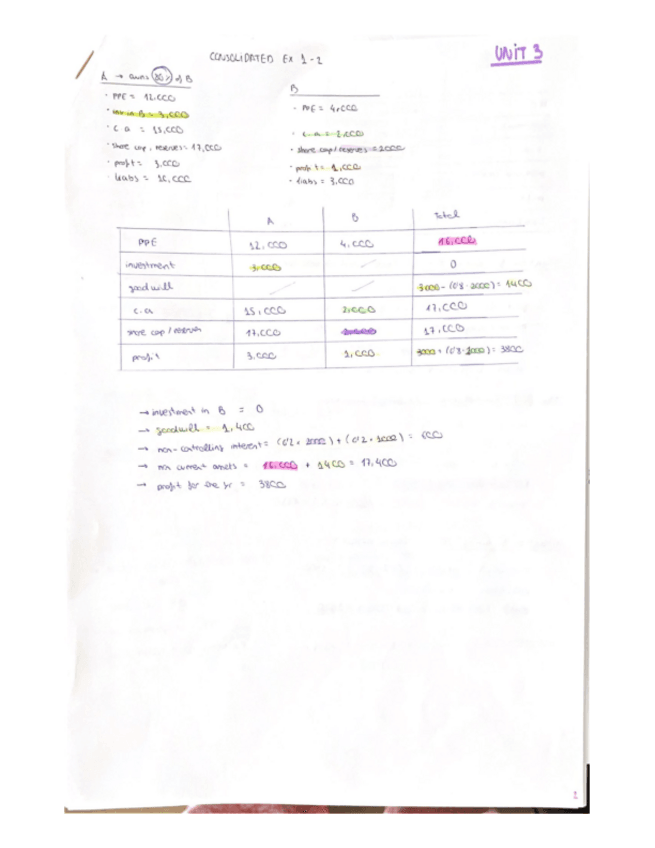 CONSOLIDATED EX 1-2
UNIT 3
A → owns 80% of B
· PPE = 12,000
· inv in B = 3,000
· c.a = 15,000
· share cap. reserves = 17,000
· profit = 3,000
· liabs = 10,000
B
- PPE = 4,000
· c.a = 2,000
· share cap / reserves = 2000
· profit = 1,000
- liabs = 3,000
A B Total
PPE 12,000 4,000 16,000
investment 3,000 / 0
goodwill / / 3000 - (0'8 · 2000) = 1400
c.a 15,000 2,000 17,000
share cap / reserves 17,000 17,000
profit 3,000 1,000 3000 + (0'8 · 1000) = 3800
→ investment in B = 0
→ goodwill = 1,400
→ non-controlling interest = (0'2 × 2000) + (0'2 × 1000) = 600
→ non current assets = 16,000 + 1400 = 17,400
→ profit for the yr = 3800
1